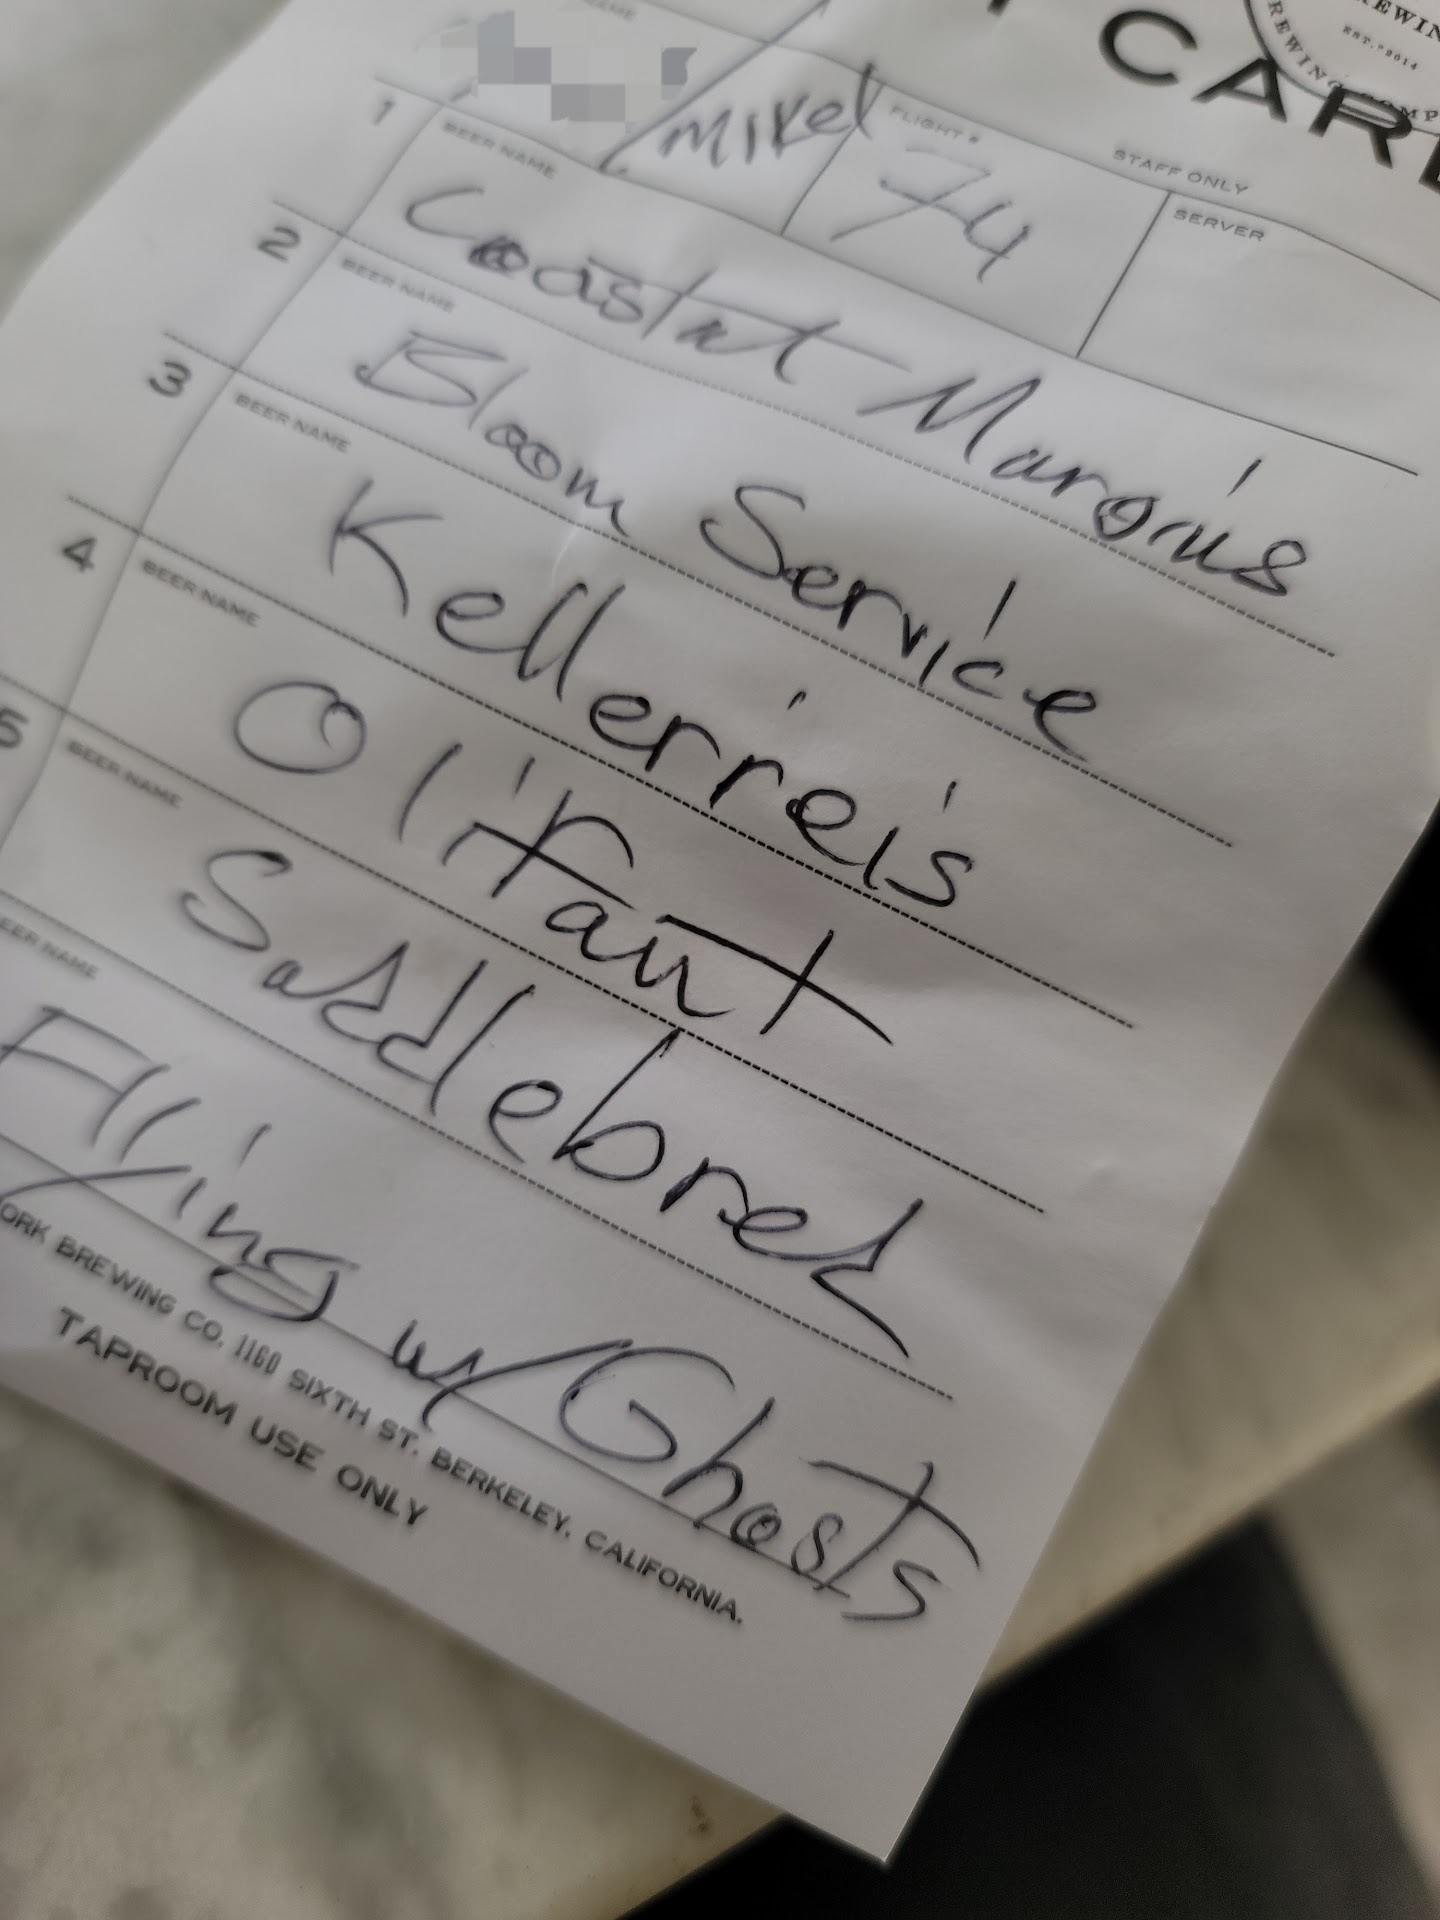 NAME
CAR
REWIN
EST. 2014
REWING COMP
Mikel
FLIGHT #
74
STAFF ONLY
SERVER
1
BEER NAME
Coastal Marg'ins
2
BEER NAME
Bloom Service
3
BEER NAME
Kellerreis
4
BEER NAME
Olifant
5
BEER NAME
Saddlebred
EER NAME
Flying w/ Ghosts
ORK BREWING CO. 1160 SIXTH ST. BERKELEY, CALIFORNIA.
TAPROOM USE ONLY